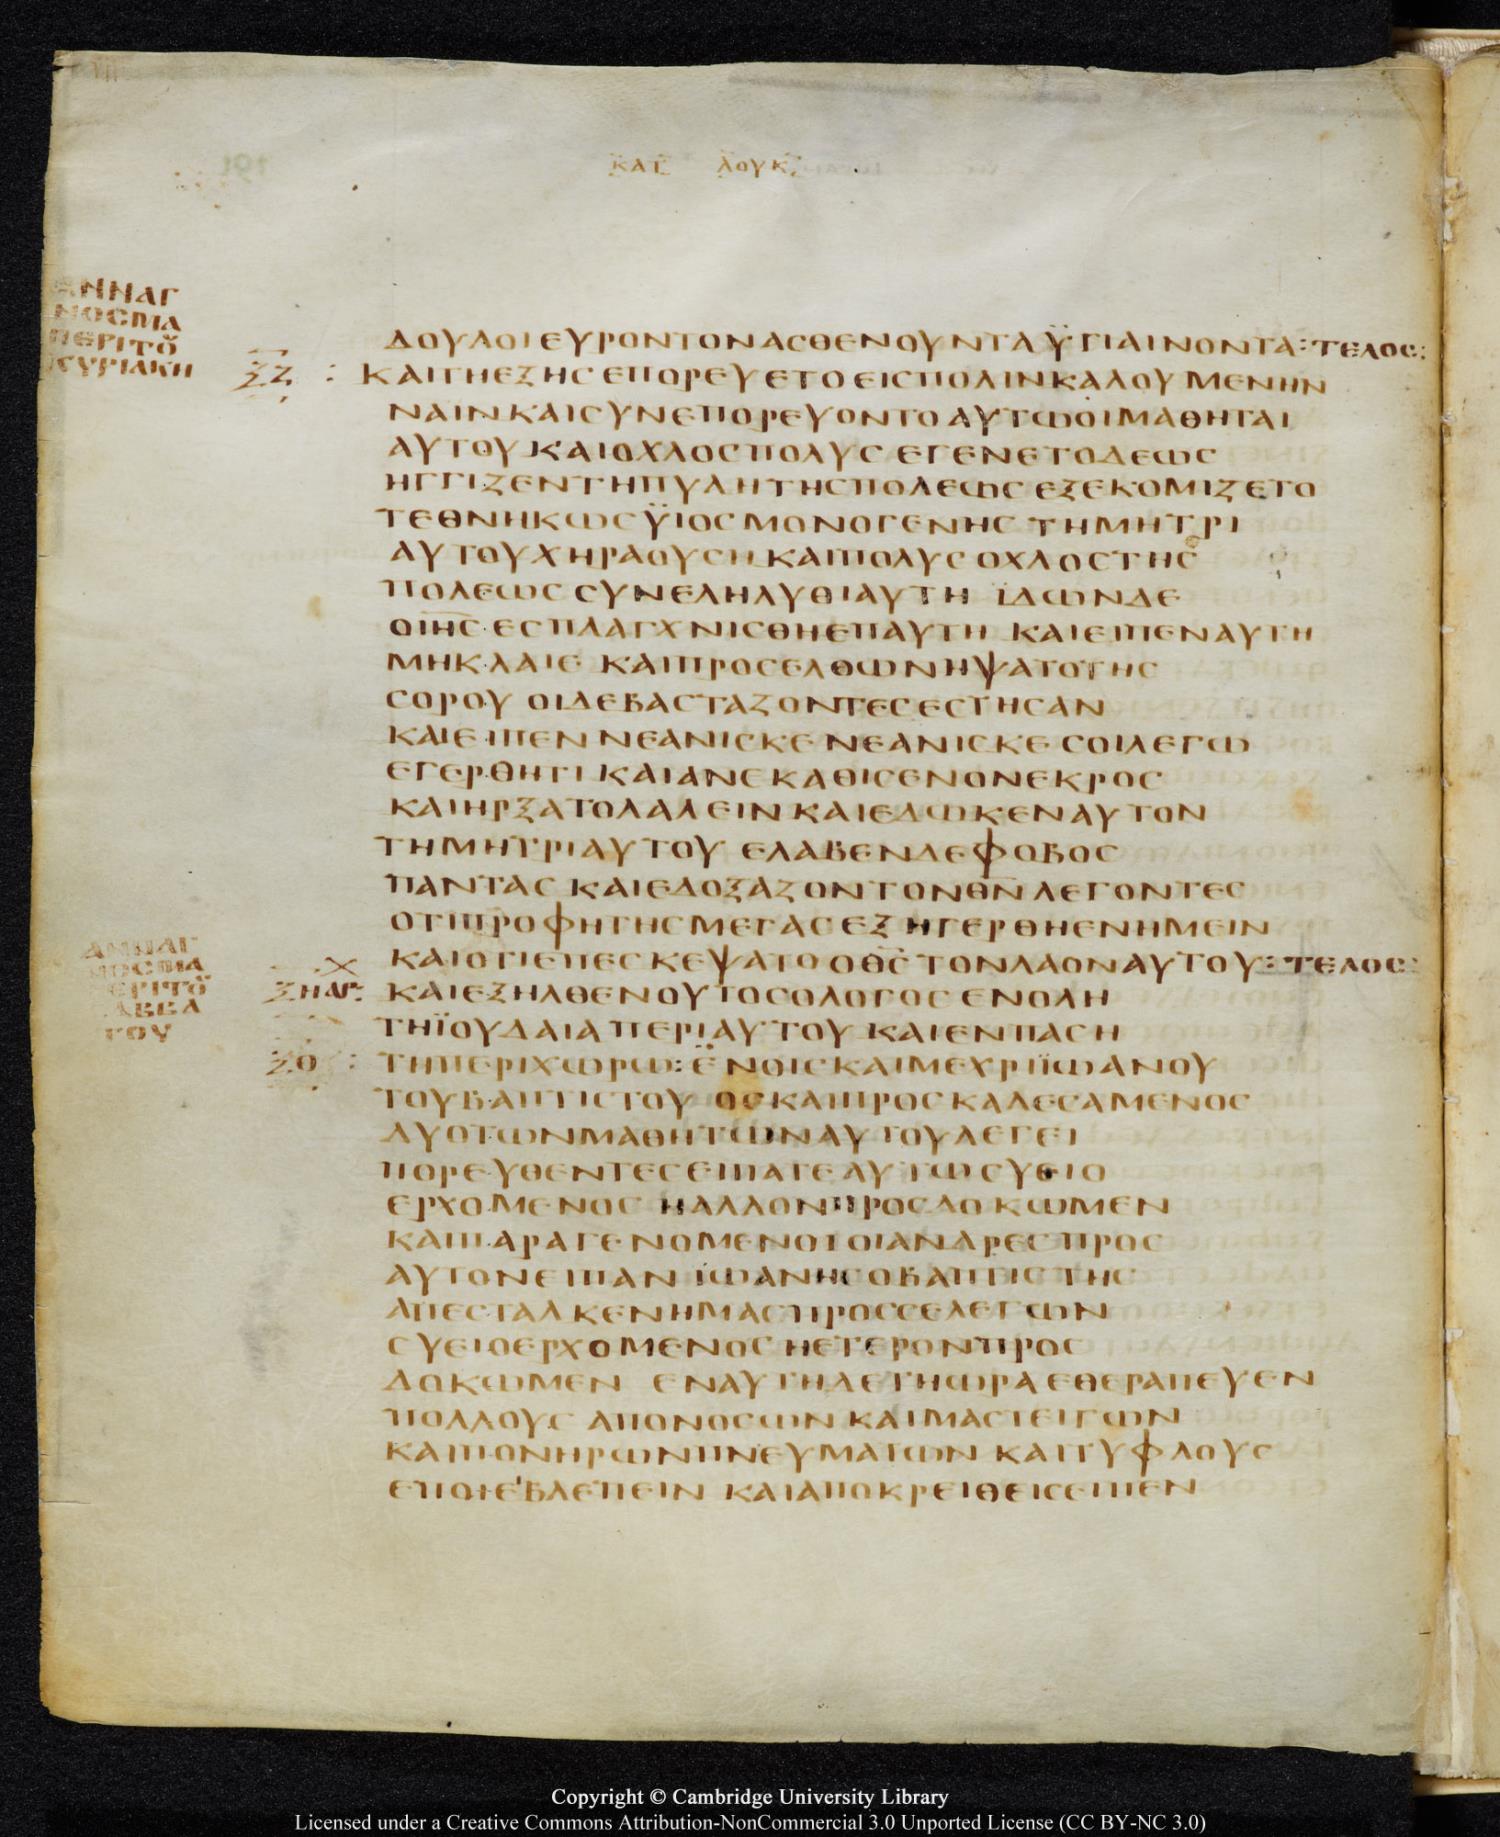 ΚΑΤ ΛΟΥΚ
ΑΝΝΑΓ
ΝΟΣΜΑ
ΠΕΡΙΤΟΥ
ΚΥΡΙΑΚΗ
ΔΟΥΛΟΙΕΥΡΟΝΤΟΝΑΣΘΕΝΟΥΝΤΑΫΓΙΑΙΝΟΝΤΑ:ΤΕΛΟΣ:
ΞΖ : ΚΑΙΤΗΕΞΗΣΕΠΟΡΕΥΕΤΟΕΙΣΠΟΛΙΝΚΑΛΟΥΜΕΝΗΝ
ΝΑΙΝΚΑΙΣΥΝΕΠΟΡΕΥΟΝΤΟΑΥΤΩΟΙΜΑΘΗΤΑΙ
ΑΥΤΟΥΚΑΙΟΧΛΟΣΠΟΛΥΣ ΕΓΕΝΕΤΟΔΕΩΣ
ΗΓΓΙΖΕΝΤΗΠΥΛΗΤΗΣΠΟΛΕΩΣΕΞΕΚΟΜΙΖΕΤΟ
ΤΕΘΝΗΚΩΣΫΙΟΣΜΟΝΟΓΕΝΗΣ ΤΗΜΗΤΡΙ
ΑΥΤΟΥΧΗΡΑΟΥΣΗΚΑΙΠΟΛΥΣ ΟΧΛΟΣΤΗΣ
ΠΟΛΕΩΣ ΣΥΝΕΛΗΛΥΘΙΑΥΤΗ ΪΔΩΝΔΕ
ΟΙΗΣ ΕΣΠΛΑΓΧΝΙΣΘΗΕΠΑΥΤΗ ΚΑΙΕΙΠΕΝΑΥΤΗ
ΜΗΚΛΑΙΕ ΚΑΙΠΡΟΣΕΛΘΩΝΗΨΑΤΟΤΗΣ
ΣΟΡΟΥ ΟΙΔΕΒΑΣΤΑΖΟΝΤΕΣΕΣΤΗΣΑΝ
ΚΑΙΕΙΠΕΝ ΝΕΑΝΙΣΚΕ ΝΕΑΝΙΣΚΕ ΣΟΙΛΕΓΩ
ΕΓΕΡΘΗΤΙ ΚΑΙΑΝΕΚΑΘΙΣΕΝΟΝΕΚΡΟΣ
ΚΑΙΗΡΞΑΤΟΛΑΛΕΙΝ ΚΑΙΕΔΩΚΕΝΑΥΤΟΝ
ΤΗΜΗΤΡΙΑΥΤΟΥ ΕΛΑΒΕΝΔΕΦΟΒΟΣ
ΠΑΝΤΑΣ ΚΑΙΕΔΟΞΑΖΟΝΤΟΝΘΝ ΛΕΓΟΝΤΕΣ
ΟΤΙΠΡΟΦΗΤΗΣΜΕΓΑΣΕΞΗΓΕΡΘΗΕΝΗΜΕΙΝ
ΚΑΙΟΤΙΕΠΕΣΚΕΨΑΤΟ ΟΘΣ ΤΟΝΛΑΟΝΑΥΤΟΥ:ΤΕΛΟΣ:
ΑΝΝΑΓ
ΝΟΣΜΑ
ΠΕΡΙΤΟΥ
ΣΑΒΒΑ
ΤΟΥ
ΞΗΑΡ: ΚΑΙΕΞΗΛΘΕΝΟΥΤΟΣΟΛΟΓΟΣ ΕΝΟΛΗ
ΤΗΪΟΥΔΑΙΑΠΕΡΙΑΥΤΟΥ ΚΑΙΕΝΠΑΣΗ
ΞΘ : ΤΗΠΕΡΙΧΩΡΩ: ΕΝΟΙΣΚΑΙΜΕΧΡΙΪΩΑΝΟΥ
ΤΟΥΒΑΠΤΙΣΤΟΥ ΟΣΚΑΙΠΡΟΣΚΑΛΕΣΑΜΕΝΟΣ
ΔΥΟΤΩΝΜΑΘΗΤΩΝΑΥΤΟΥΛΕΓΕΙ
ΠΟΡΕΥΘΕΝΤΕΣΕΙΠΑΤΕΑΥΤΩΣΥΕΙΟ
ΕΡΧΟΜΕΝΟΣ ΗΑΛΛΟΝΠΡΟΣΔΟΚΩΜΕΝ
ΚΑΙΠΑΡΑΓΕΝΟΜΕΝΟΙΟΙΑΝΔΡΕΣΠΡΟΣ
ΑΥΤΟΝΕΙΠΑΝ ΙΩΑΝΗΣΟΒΑΠΤΙΣΤΗΣ
ΑΠΕΣΤΑΛΚΕΝΗΜΑΣΠΡΟΣΣΕΛΕΓΩΝ
ΣΥΕΙΟΕΡΧΟΜΕΝΟΣ ΗΕΤΕΡΟΝΠΡΟΣ
ΔΟΚΩΜΕΝ ΕΝΑΥΤΗΔΕΤΗΩΡΑΕΘΕΡΑΠΕΥΕΝ
ΠΟΛΛΟΥΣ ΑΠΟΝΟΣΩΝ ΚΑΙΜΑΣΤΕΙΓΩΝ
ΚΑΙΠΟΝΗΡΩΝΠΝΕΥΜΑΤΩΝ ΚΑΙΤΥΦΛΟΥΣ
ΕΠΟΙΕΙΒΛΕΠΕΙΝ ΚΑΙΑΠΟΚΡΕΙΘΕΙΣΕΙΠΕΝ